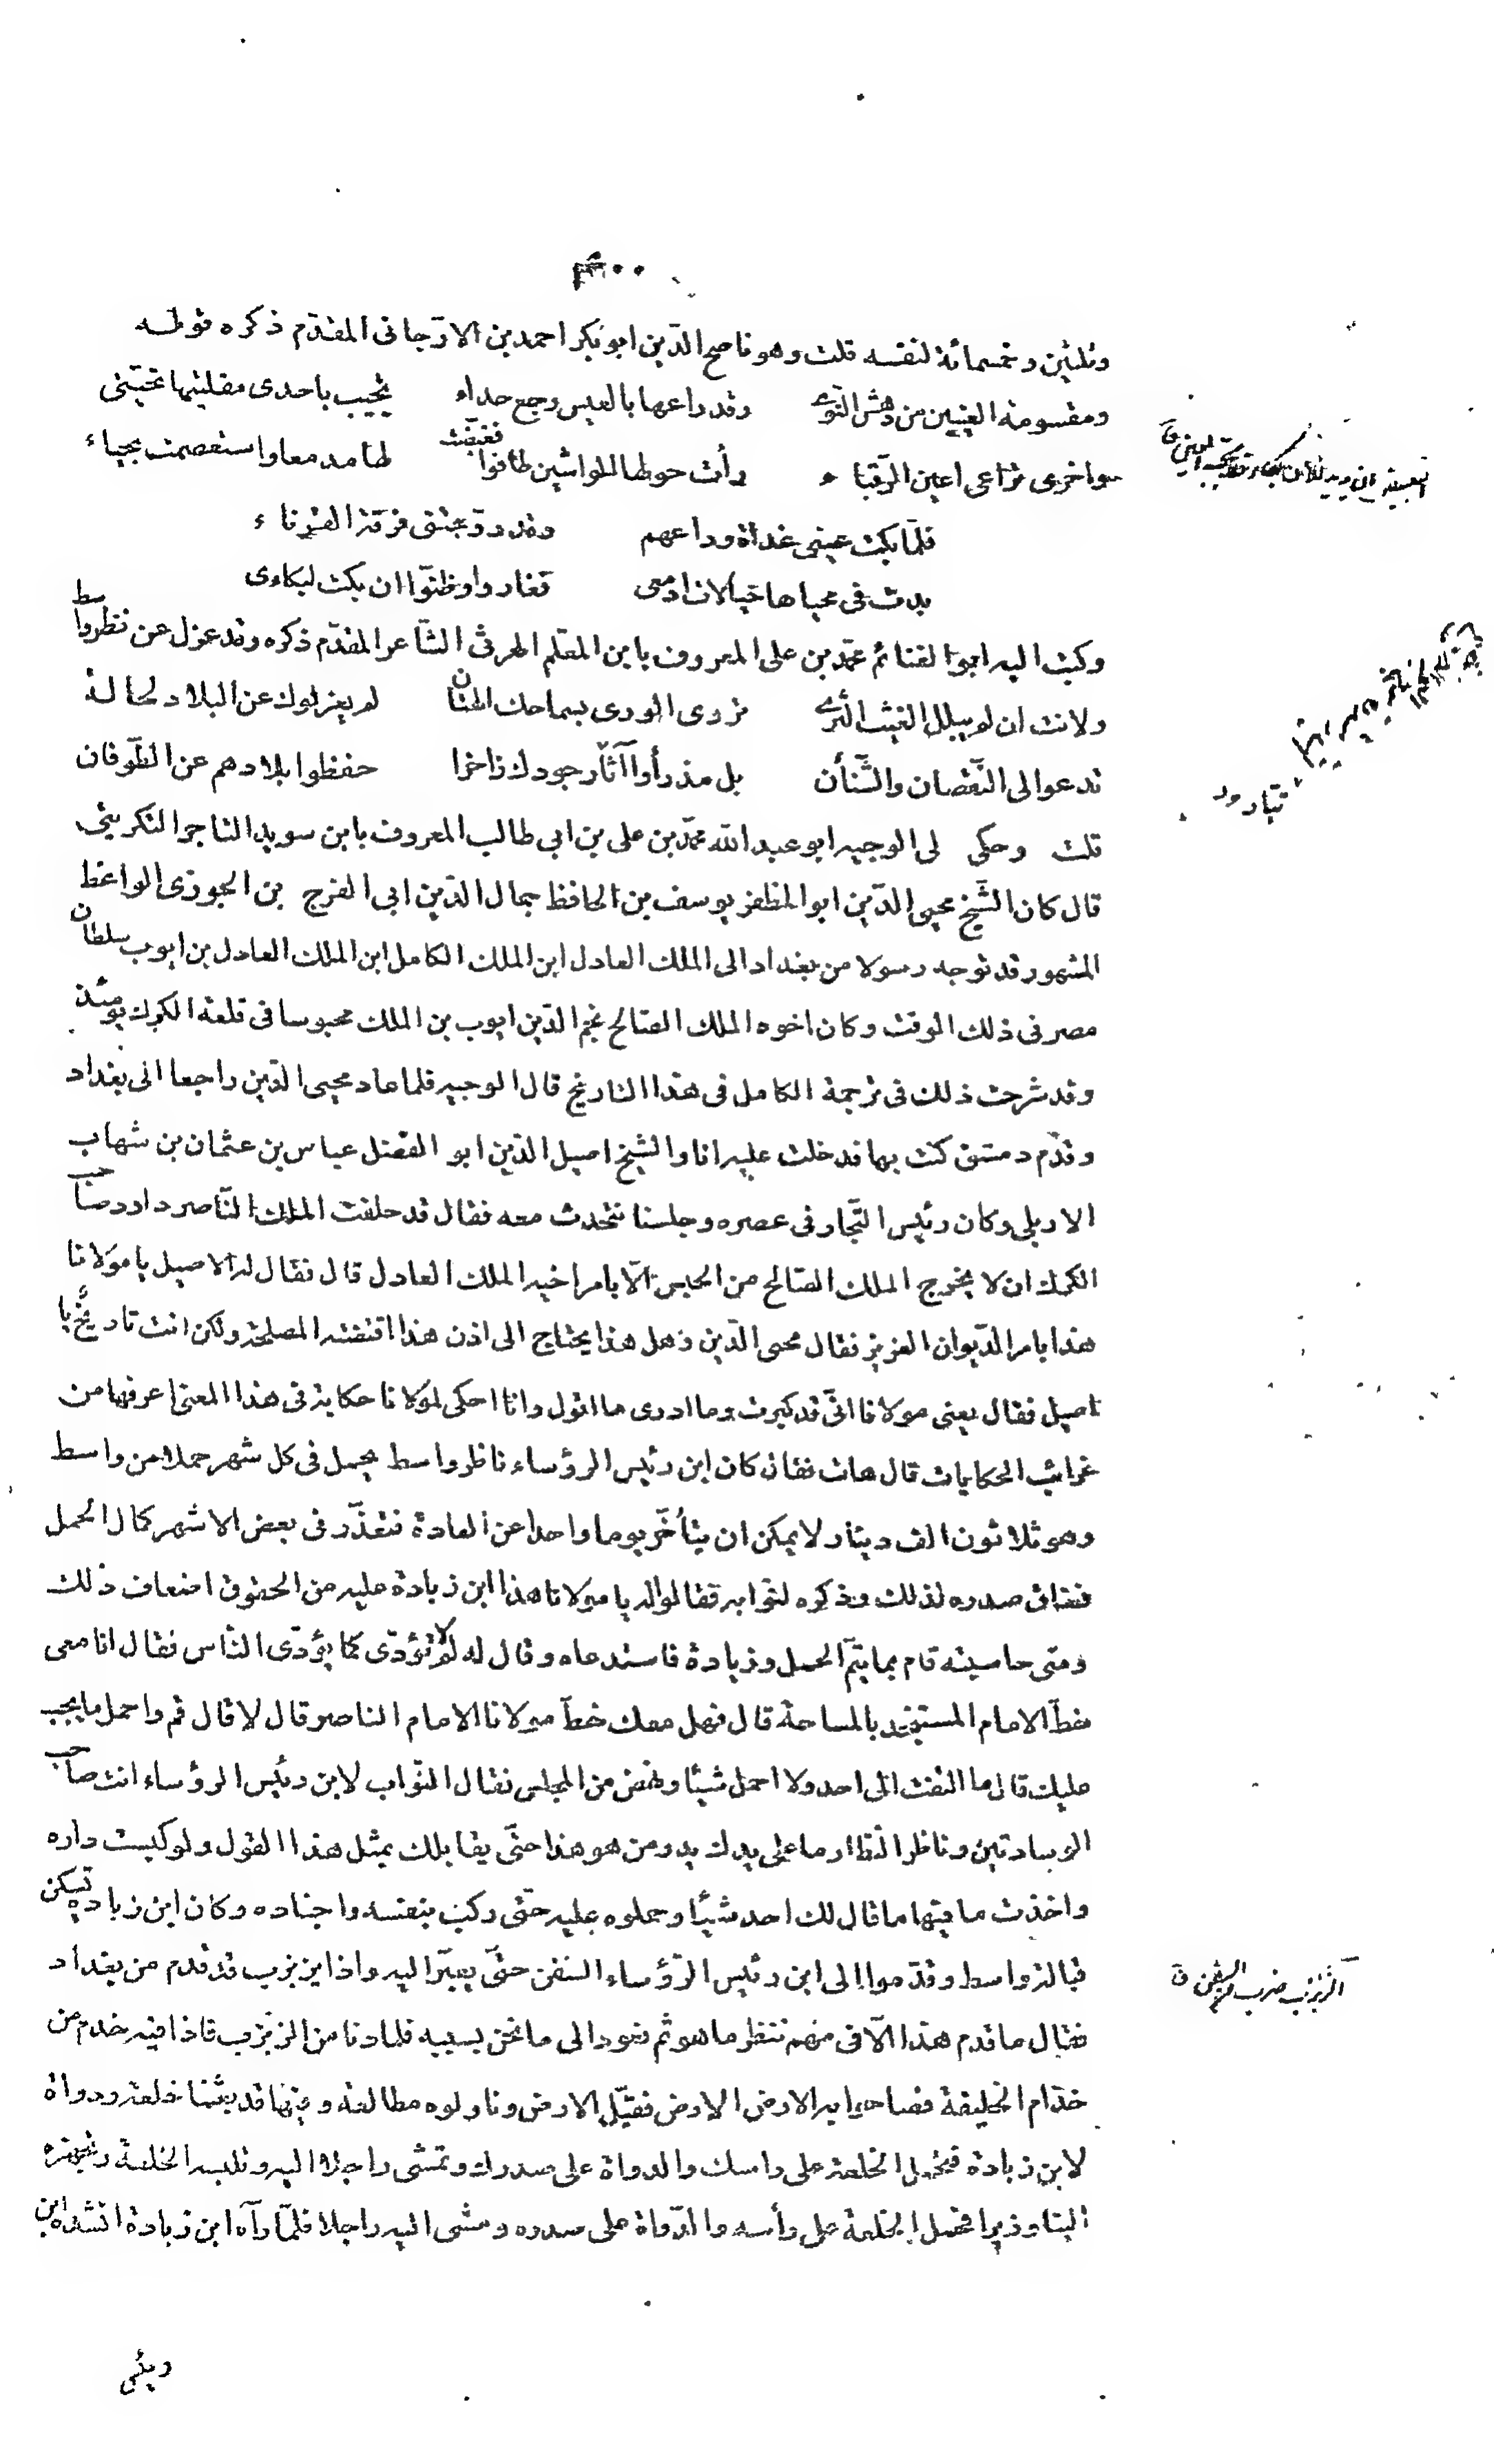 وثلثين وخمسمائة لنفسه قلت وهو ناصح الدّين ابو بكر احمد بن الارّجانى المقدّم ذكره قوله
ومقسومة العينين من دهش النوى وقد راعها بالعيس رجع حداء تجيب باحدى مقلتيها تحيّتى
واخرى تراعى اعين الرّقباء رأت حولها الواشين طافوا فغيّضت لها مدمعا واستعصمت بحياء
فلمّا بكت عينى غداة وداعهم وقد روّعتنى فرقة القرناء
بدت فى محياها خيالات ادمعى فغاروا وظنّوا ان بكت لبكاءى
وكتب اليه ابو الغنائم محمّد بن على المعروف بابن المعلّم الهرثى الشّاعر المقدّم ذكره وقد عزل عن نظر واسط
ولانت ان لو يبلل الغيث الثرى تروى الورى بسماحك الهتان لم يعزلوك عن البلاد لحالة
تدعو الى النّقصان والشّنأن بل مذ رأوا آثار جودك زاخرا حفظوا بلادهم عن الطّوفان
قلت وحكى لى الوجيه ابو عبد الله محمّد بن على بن ابى طالب المعروف بابن سويد التاجر التكريتى
قال كان الشّيخ محيى الدّين ابو المظفر يوسف بن الحافظ جمال الدّين ابى الفرج بن الجوزى الواعظ
المشهور قد توجه رسولا من بغداد الى الملك العادل ابن الملك الكامل ابن الملك العادل بن ايوب سلطان
مصر فى ذلك الوقت وكان اخوه الملك الصّالح نجم الدّين ايوب بن الملك محبوسا فى قلعة الكرك يومئذ
وقد شرحت ذلك فى ترجمة الكامل فى هذا التاريخ قال الوجيه فلما عاد محيى الدّين راجعا الى بغداد
وقدّم دمشق كنت بها فدخلت عليه انا والشيخ اصيل الدّين ابو الفضل عباس بن عثمان بن شهاب
الاربلى وكان رئيس التّجار فى عصره وجلسنا نتحدث معه فقال قد حلفت الملك النّاصر داود صاحب
الكرك ان لا يخرج الملك الصّالح من الحبس الّا بامر اخيه الملك العادل قال فقال له الاصيل يا مولانا
هذا بامر الدّيوان العزيز فقال محيى الدّين وهل هذا يحتاج الى اذن هذا اقتضته المصلحة ولكن انت تاريخ يا
اصيل فقال يعنى مولانا انّى قد كبرت وما ادرى ما اقول وانا احكى لمولانا حكاية فى هذا المعنى اعرفها من
غرائب الحكايات قال هات فقال كان ابن رئيس الرؤساء ناظر واسط يحمل فى كل شهر حملا من واسط
وهو ثلاثون الف دينار لا يمكن ان يتأخّر يوما واحدا عن العادة فتعذّر فى بعض الاشهر كمال الحمل
فضاق صدره لذلك وذكره لنوّابه فقالوا له يا مولانا هذا ابن زيادة عليه من الحقوق اضعاف ذلك
ومتى حاسبته قام بما يتمّ الحمل وزيادة فاستدعاه وقال له لم لا تؤدّى كما يؤدّى النّاس فقال انا معى
خطّ الامام المستنجد بالمسامحة قال فهل معك خطّ مولانا الامام الناصر قال لا قال قم واحمل ما يجب
عليك قال ما التفت الى احد ولا احمل شيئا ونهض من المجلس فقال النوّاب لابن رئيس الرؤساء انت صاحب
الوسادتين وناظر النظار وما على يدك يد ومن هو هذا حتّى يقابلك بمثل هذا القول ولو كبست داره
واخذت ما فيها ما قال لك احد شيئا وحملوه عليه حتّى ركب بنفسه واجناده وكان ابن زيادة يسكن
قبالة واسط وقدّموا الى ابن رئيس الرّؤساء السفن حتّى يعبر اليه واذا بزبزب قد قدم من بغداد
فقال ما قدم هذا الّا فى مهم ننظر ما هو ثم نعود الى ما نحن بسببه فلما دنا من الزبزب فاذا فيه خدم من
خدّام الخليفة فصاحوا به الارض الارض فقبّل الارض وناولوه مطالعة وفيها قد بعثنا خلعة ودواة
لابن زيادة فتحمل الخلعة على راسك والدواة على صدرك وتمشى راجلا اليه وتلبسه الخلعة وتجهزه
الينا وزيرا فحمل الخلعة على رأسه والدّواة على صدره ومشى اليه راجلا فلمّا رآه ابن زيادة انشده ابن
الزبزب ضرب من السفن ق